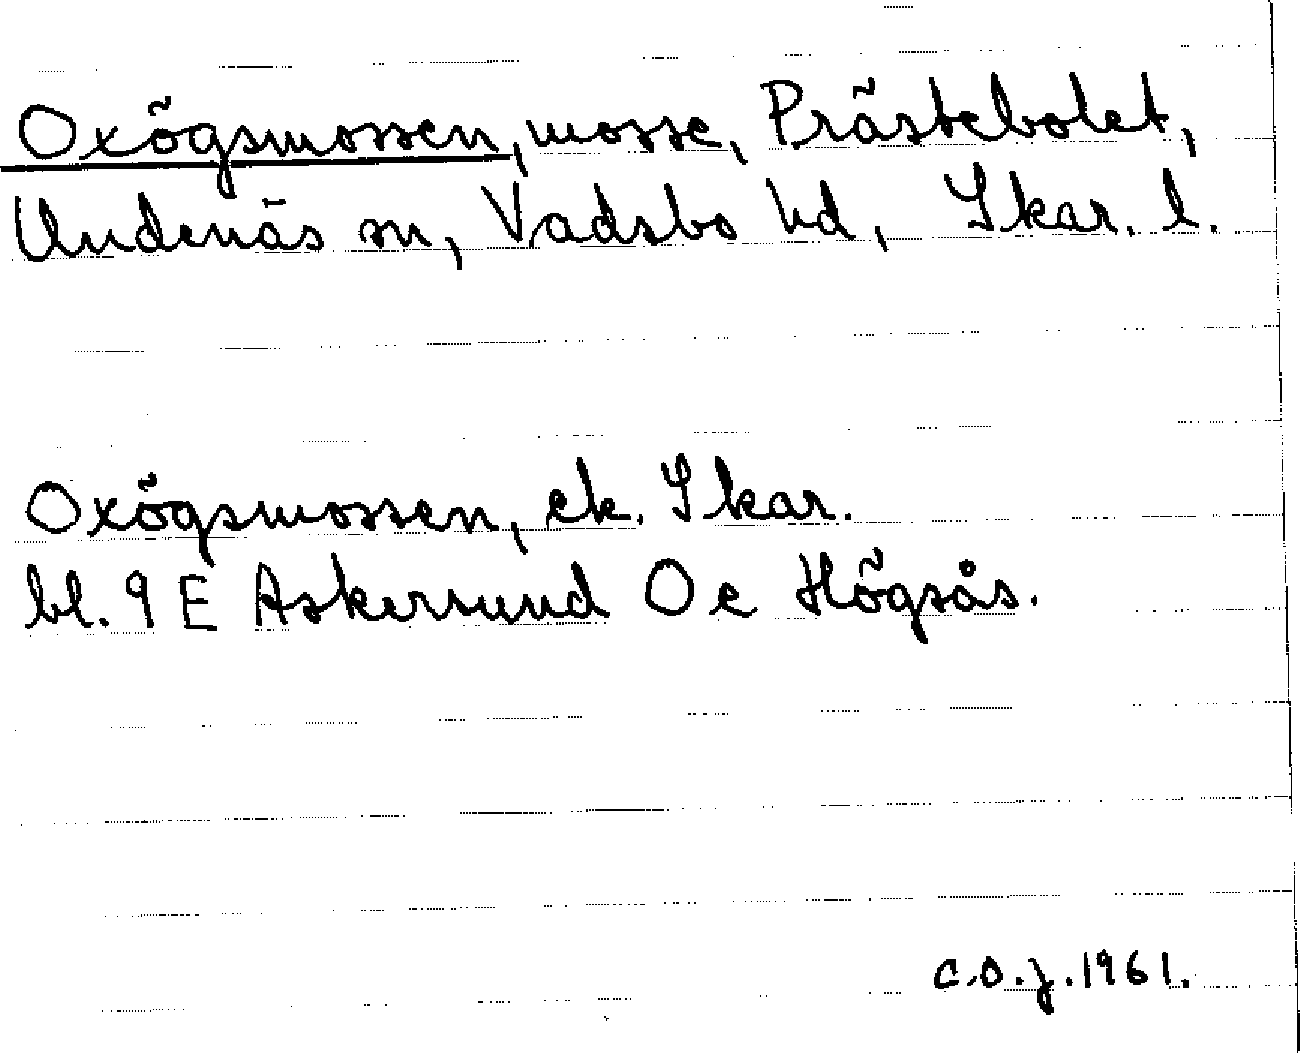 Oxögsmossen, mosse, Prästebolet,
Undenäs sn, Vadsbo hd, Skar. l.
Oxögsmossen, ek. Skar.
bl. 9 E Askersund O e Högsås.
C.O.J. 1961.